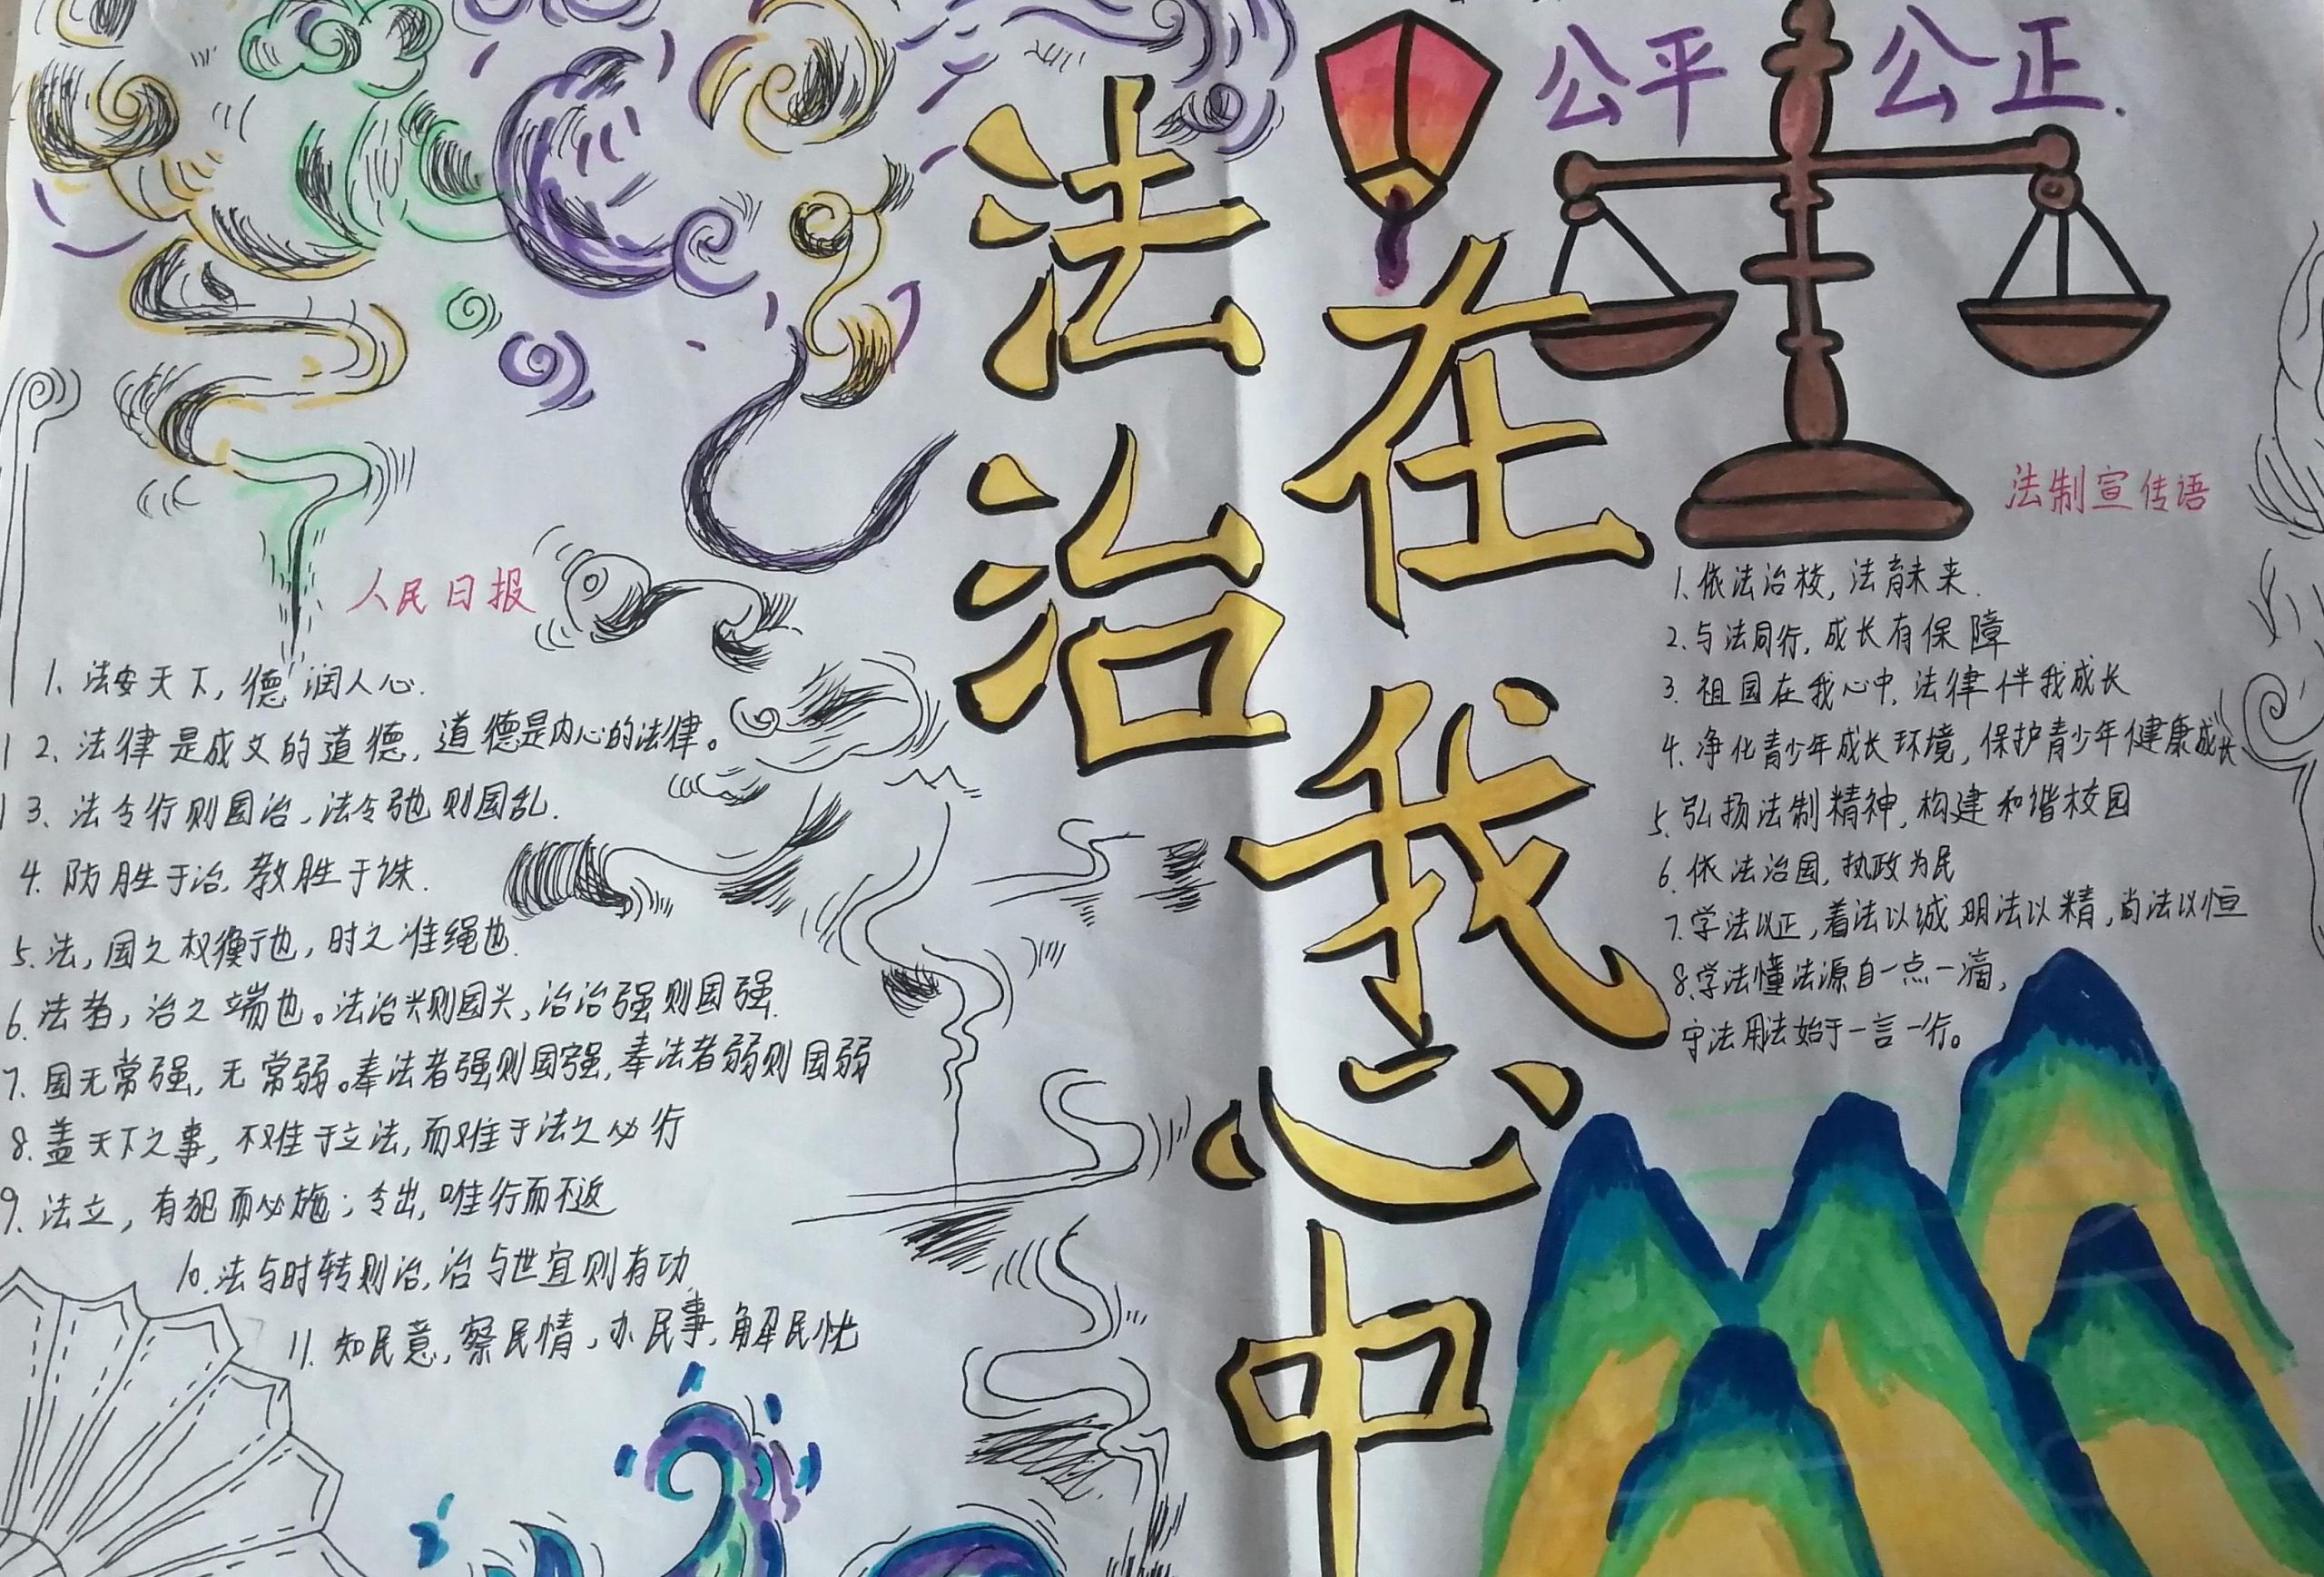 法治
在我心中
公平 公正.
人民日报
1. 法安天下, 德润人心.
2. 法律是成文的道德, 道德是内心的法律。
3. 法令行则国治, 法令弛则国乱.
4. 防胜于治, 教胜于诛.
5. 法, 国之权衡也, 时之准绳也.
6. 法者, 治之端也。法治兴则国兴, 治治强则国强.
7. 国无常强, 无常弱。奉法者强则国强, 奉法者弱则国弱
8. 盖天下之事, 不难于立法, 而难于法之必行
9. 法立, 有犯而必施; 令出, 唯行而不返
10. 法与时转则治, 治与世宜则有功
11. 知民意, 察民情, 办民事, 解民忧
法制宣传语
1. 依法治校, 法育未来.
2. 与法同行, 成长有保障
3. 祖国在我心中, 法律伴我成长
4. 净化青少年成长环境, 保护青少年健康成长
5. 弘扬法制精神, 构建和谐校园
6. 依法治国, 执政为民
7. 学法以正, 着法以诚 明法以精, 尚法以恒
8. 学法懂法源自一点一滴,
守法用法始于一言一行。